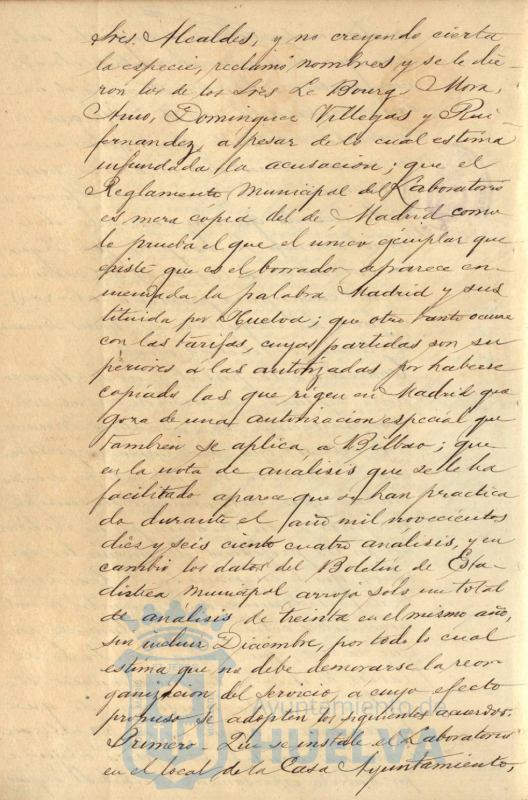 Sres. Alcaldes, y no creyendo cierta
la especie, reclamó nombres y se le die-
ron los de los Sres Le Bourg, Mora,
Domínguez Villegas y Rui
fernandez, a pesar de lo cual estima
infundada la acusación; que el
Reglamento Municipal del Laboratorio
es mera copia del de Madrid como
lo prueba el que el unico ejemplar que
existe que es el borrador aparece en-
mendada la palabra Madrid y sus
tituida por Huelva; que otro tanto ocurre
con las tarifas, cuyas partidas son su
periores a las autorizadas por haberse
copiado las que rigen en Madrid que
goza de una autorización especial que
tambien se aplica a Bilbao; que
en la nota de análisis que se le ha
facilitado aparece que se han practica
do durante el año mil novecientos
diez y seis ciento cuatro análisis, y en
cambio los datos del Boletin de Esta-
distica Municipal arroja solo un total
de análisis de treinta en el mismo año,
sin incluir Diciembre, por todo lo cual
estima que no debe demorarse la reor-
ganización del servicio, a cuyo efecto
propuso se adopten los siguientes acuerdos:
Primero- Que se instale el Laboratorio
en el local de la Casa Ayuntamiento,
Ayuntamiento de
HUELVA